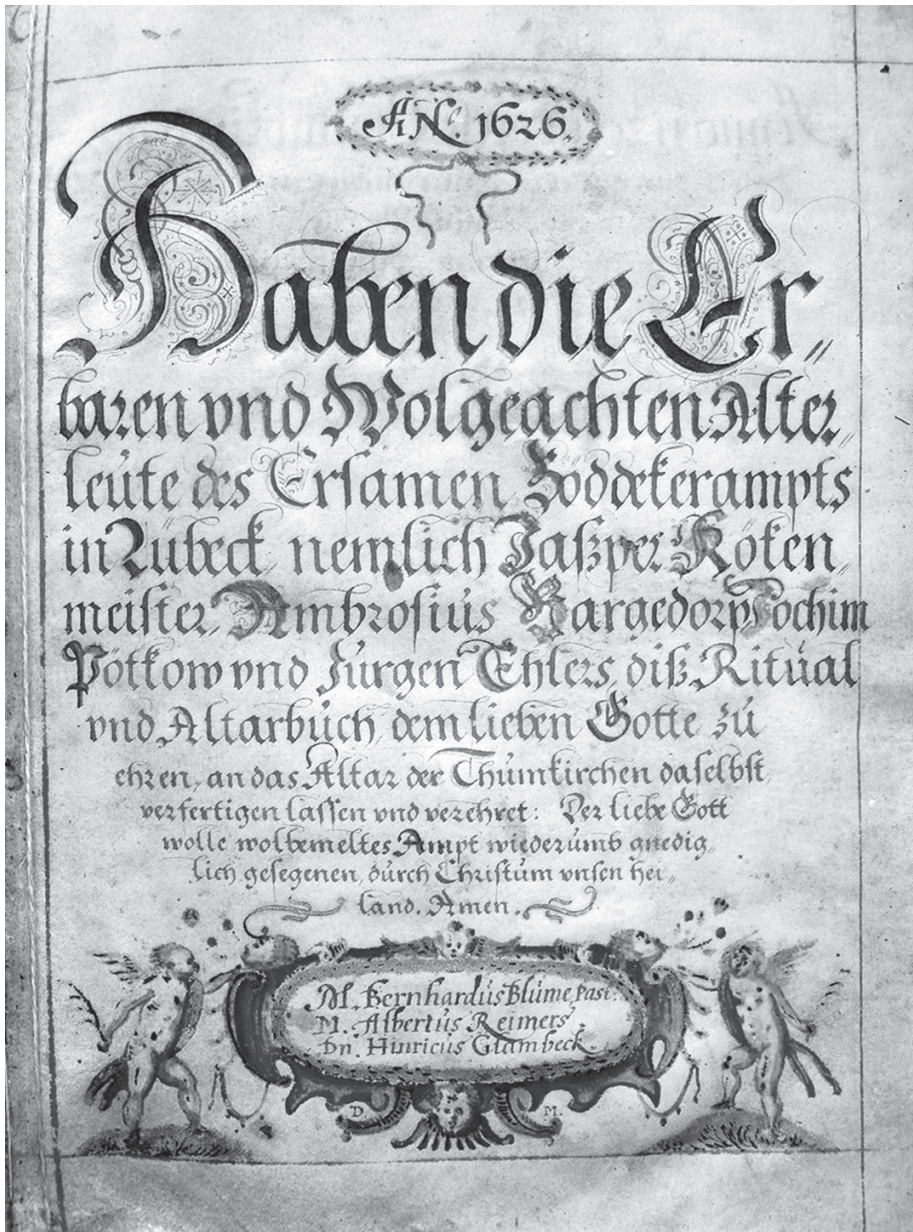 AN.º 1626.
Haben die Er„
baren vnd Wolgeachten Alter„
leute des Ersamen Boddekerampts
in Lübeck, nemlich Jaßper Köken„
meister, Ambrosius Bargedorp, Jochim
Pötkow vnd Jürgen Ehlers diß Ritual
vnd Altarbuch dem lieben Gotte zu
ehren, an das Altar der Thumkirchen daselbst
verfertigen lassen vnd verehret: Der liebe Gott
wolle wolbemeltes Ampt wiederumb gnedig„
lich gesegenen, durch Christum vnsen hei„
land. Amen.
M. Bernhardus Blume, Past:
M. Albertus Reimers.
Dn. Hinricus Glambeck.
D. M.